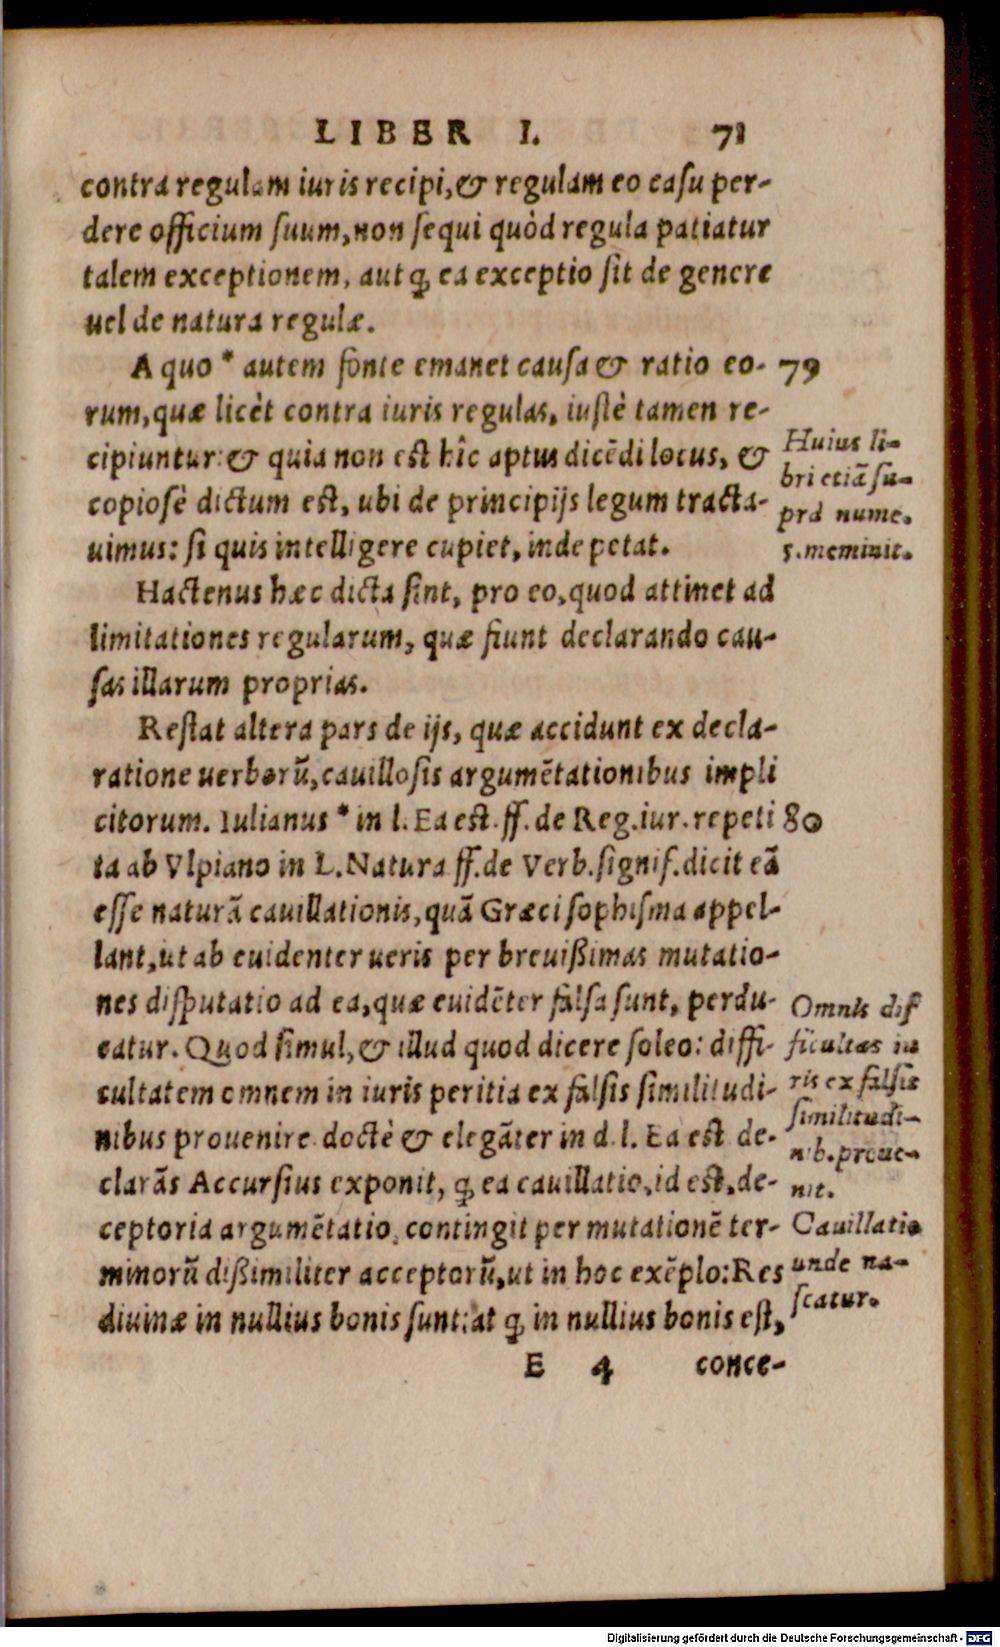 LIBER I. 71
contra regulam iuris recipi, & regulam eo casu per-
dere officium suum, non sequi quòd regula patiatur
talem exceptionem, aut ꝙ ea exceptio sit de genere
uel de natura regulæ.
A quo * autem fonte emanet causa & ratio eo- 79
rum, quæ licèt contra iuris regulas, iustè tamen re-
cipiuntur: & quia non est hîc aptus dicēdi locus, &
copiosè dictum est, ubi de principijs legum tracta-
uimus: si quis intelligere cupiet, inde petat.
Huius li-
bri etiā su-
prà nume.
5. meminit.
Hactenus hæc dicta sint, pro eo, quod attinet ad
limitationes regularum, quæ fiunt declarando cau-
sas illarum proprias.
Restat altera pars de ijs, quæ accidunt ex decla-
ratione uerborū, cauillosis argumētationibus impli
citorum. Iulianus * in l. Ea est. ff. de Reg. iur. repeti 80
ta ab Vlpiano in L. Natura ff. de Verb. signif. dicit eā
esse naturā cauillationis, quā Græci sophisma appel-
lant, ut ab euidenter ueris per breuißimas mutatio-
nes disputatio ad ea, quæ euidēter falsa sunt, perdu-
catur. Quod simul, & illud quod dicere soleo: diffi-
cultatem omnem in iuris peritia ex falsis similitudi-
nibus prouenire doctè & elegāter in d. l. Ea est de-
clarās Accursius exponit, ꝙ ea cauillatio, id est, de-
ceptoria argumētatio, contingit per mutationē ter-
minorū dißimiliter acceptorū, ut in hoc exēplo: Res
diuinæ in nullius bonis sunt: at ꝙ in nullius bonis est,
Omnis dif
ficultas iu
ris ex falsis
similitudi-
nib. proue-
nit.
Cauillatio
unde na-
scatur.
E 4 conce-
Digitalisierung gefördert durch die Deutsche Forschungsgemeinschaft - DFG